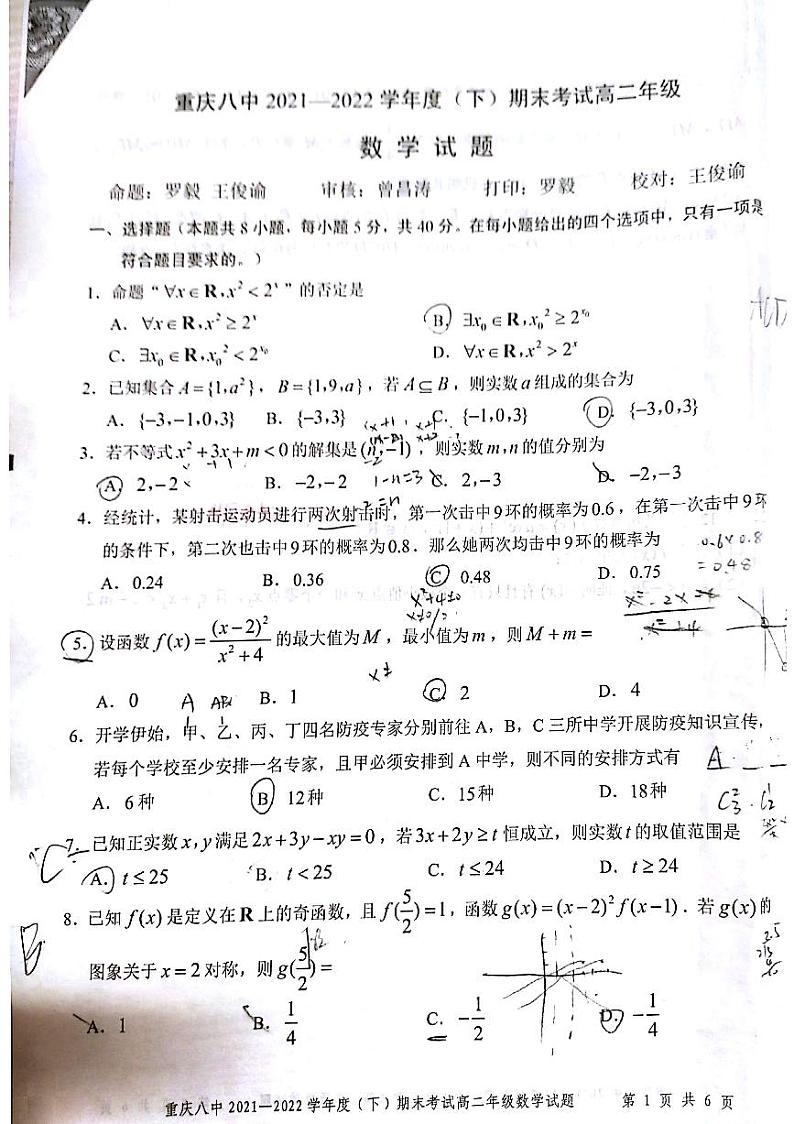 重庆八中 2021—2022 学年度（下）期末考试高二年级
数 学 试 题
命题：罗毅 王俊谕 审核：曾昌涛 打印：罗毅 校对：王俊谕
一、选择题（本题共 8 小题，每小题 5 分，共 40 分。在每小题给出的四个选项中，只有一项是
符合题目要求的。）
1. 命题“ ∀x∈R,x² < 2ˣ ”的否定是
A. ∀x∈R,x² ≥ 2ˣ B. ∃x₀∈R,x₀² ≥ 2^{x₀}
C. ∃x₀∈R,x₀² < 2^{x₀} D. ∀x∈R,x² > 2ˣ
2. 已知集合 A={1,a²}，B={1,9,a}，若 A⊆B，则实数 a 组成的集合为
A. {-3,-1,0,3} B. {-3,3} C. {-1,0,3} D. {-3,0,3}
3. 若不等式 x²+3x+m<0 的解集是 (n,-1)，则实数 m,n 的值分别为
A. 2,-2 B. -2,-2 1-n=3 C. 2,-3 D. -2,-3
2=n
4. 经统计，某射击运动员进行两次射击时，第一次击中9环的概率为0.6，在第一次击中9环
的条件下，第二次也击中9环的概率为0.8．那么她两次均击中9环的概率为 0.6×0.8
A. 0.24 B. 0.36 C. 0.48 D. 0.75 =0.48
x²+4≠0
5. 设函数 f(x)=(x-2)²/(x²+4) 的最大值为 M，最小值为 m，则 M+m=
x≠
A. 0 B. 1 C. 2 D. 4
A
6. 开学伊始，甲、乙、丙、丁四名防疫专家分别前往 A，B，C 三所中学开展防疫知识宣传，
若每个学校至少安排一名专家，且甲必须安排到 A 中学，则不同的安排方式有 A
A. 6种 B. 12种 C. 15种 D. 18种
7. 已知正实数 x,y 满足 2x+3y-xy=0，若 3x+2y≥t 恒成立，则实数 t 的取值范围是
A. t≤25 B. t<25 C. t≤24 D. t≥24
8. 已知 f(x) 是定义在 R 上的奇函数，且 f(5/2)=1，函数 g(x)=(x-2)²f(x-1)．若 g(x) 的
图象关于 x=2 对称，则 g(5/2)=
A. 1 B. 1/4 C. -1/2 D. -1/4
重庆八中 2021—2022 学年度（下）期末考试高二年级数学试题 第 1 页 共 6 页